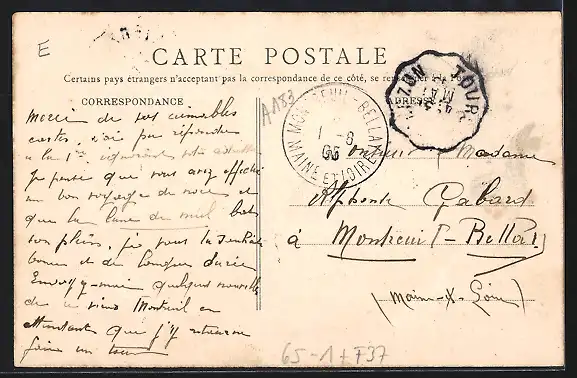 E
CARTE POSTALE
Certains pays étrangers n'acceptant pas la correspondance de ce côté, se
CORRESPONDANCE
A183
MONTREUIL-BELLAY
1 -6
06
MAINE ET LOIRE
TOURS
Merci de vos aimables
cartes, n'ai pu répondre
à la 1re
Je pense que vous avez effectué
un bon voyage de noces et
que la lune de miel bat
son plein, je vous la souhaite
bonne et de longue durée
Envoyez-moi quelques nouvelles
de ce vieux Montreuil en
attendant que j'y retourne
faire un tour
Monsieur Madame
Alphonse Gabard
à Montreuil-Bellay
(Maine-&-Loire)
65-1+F37